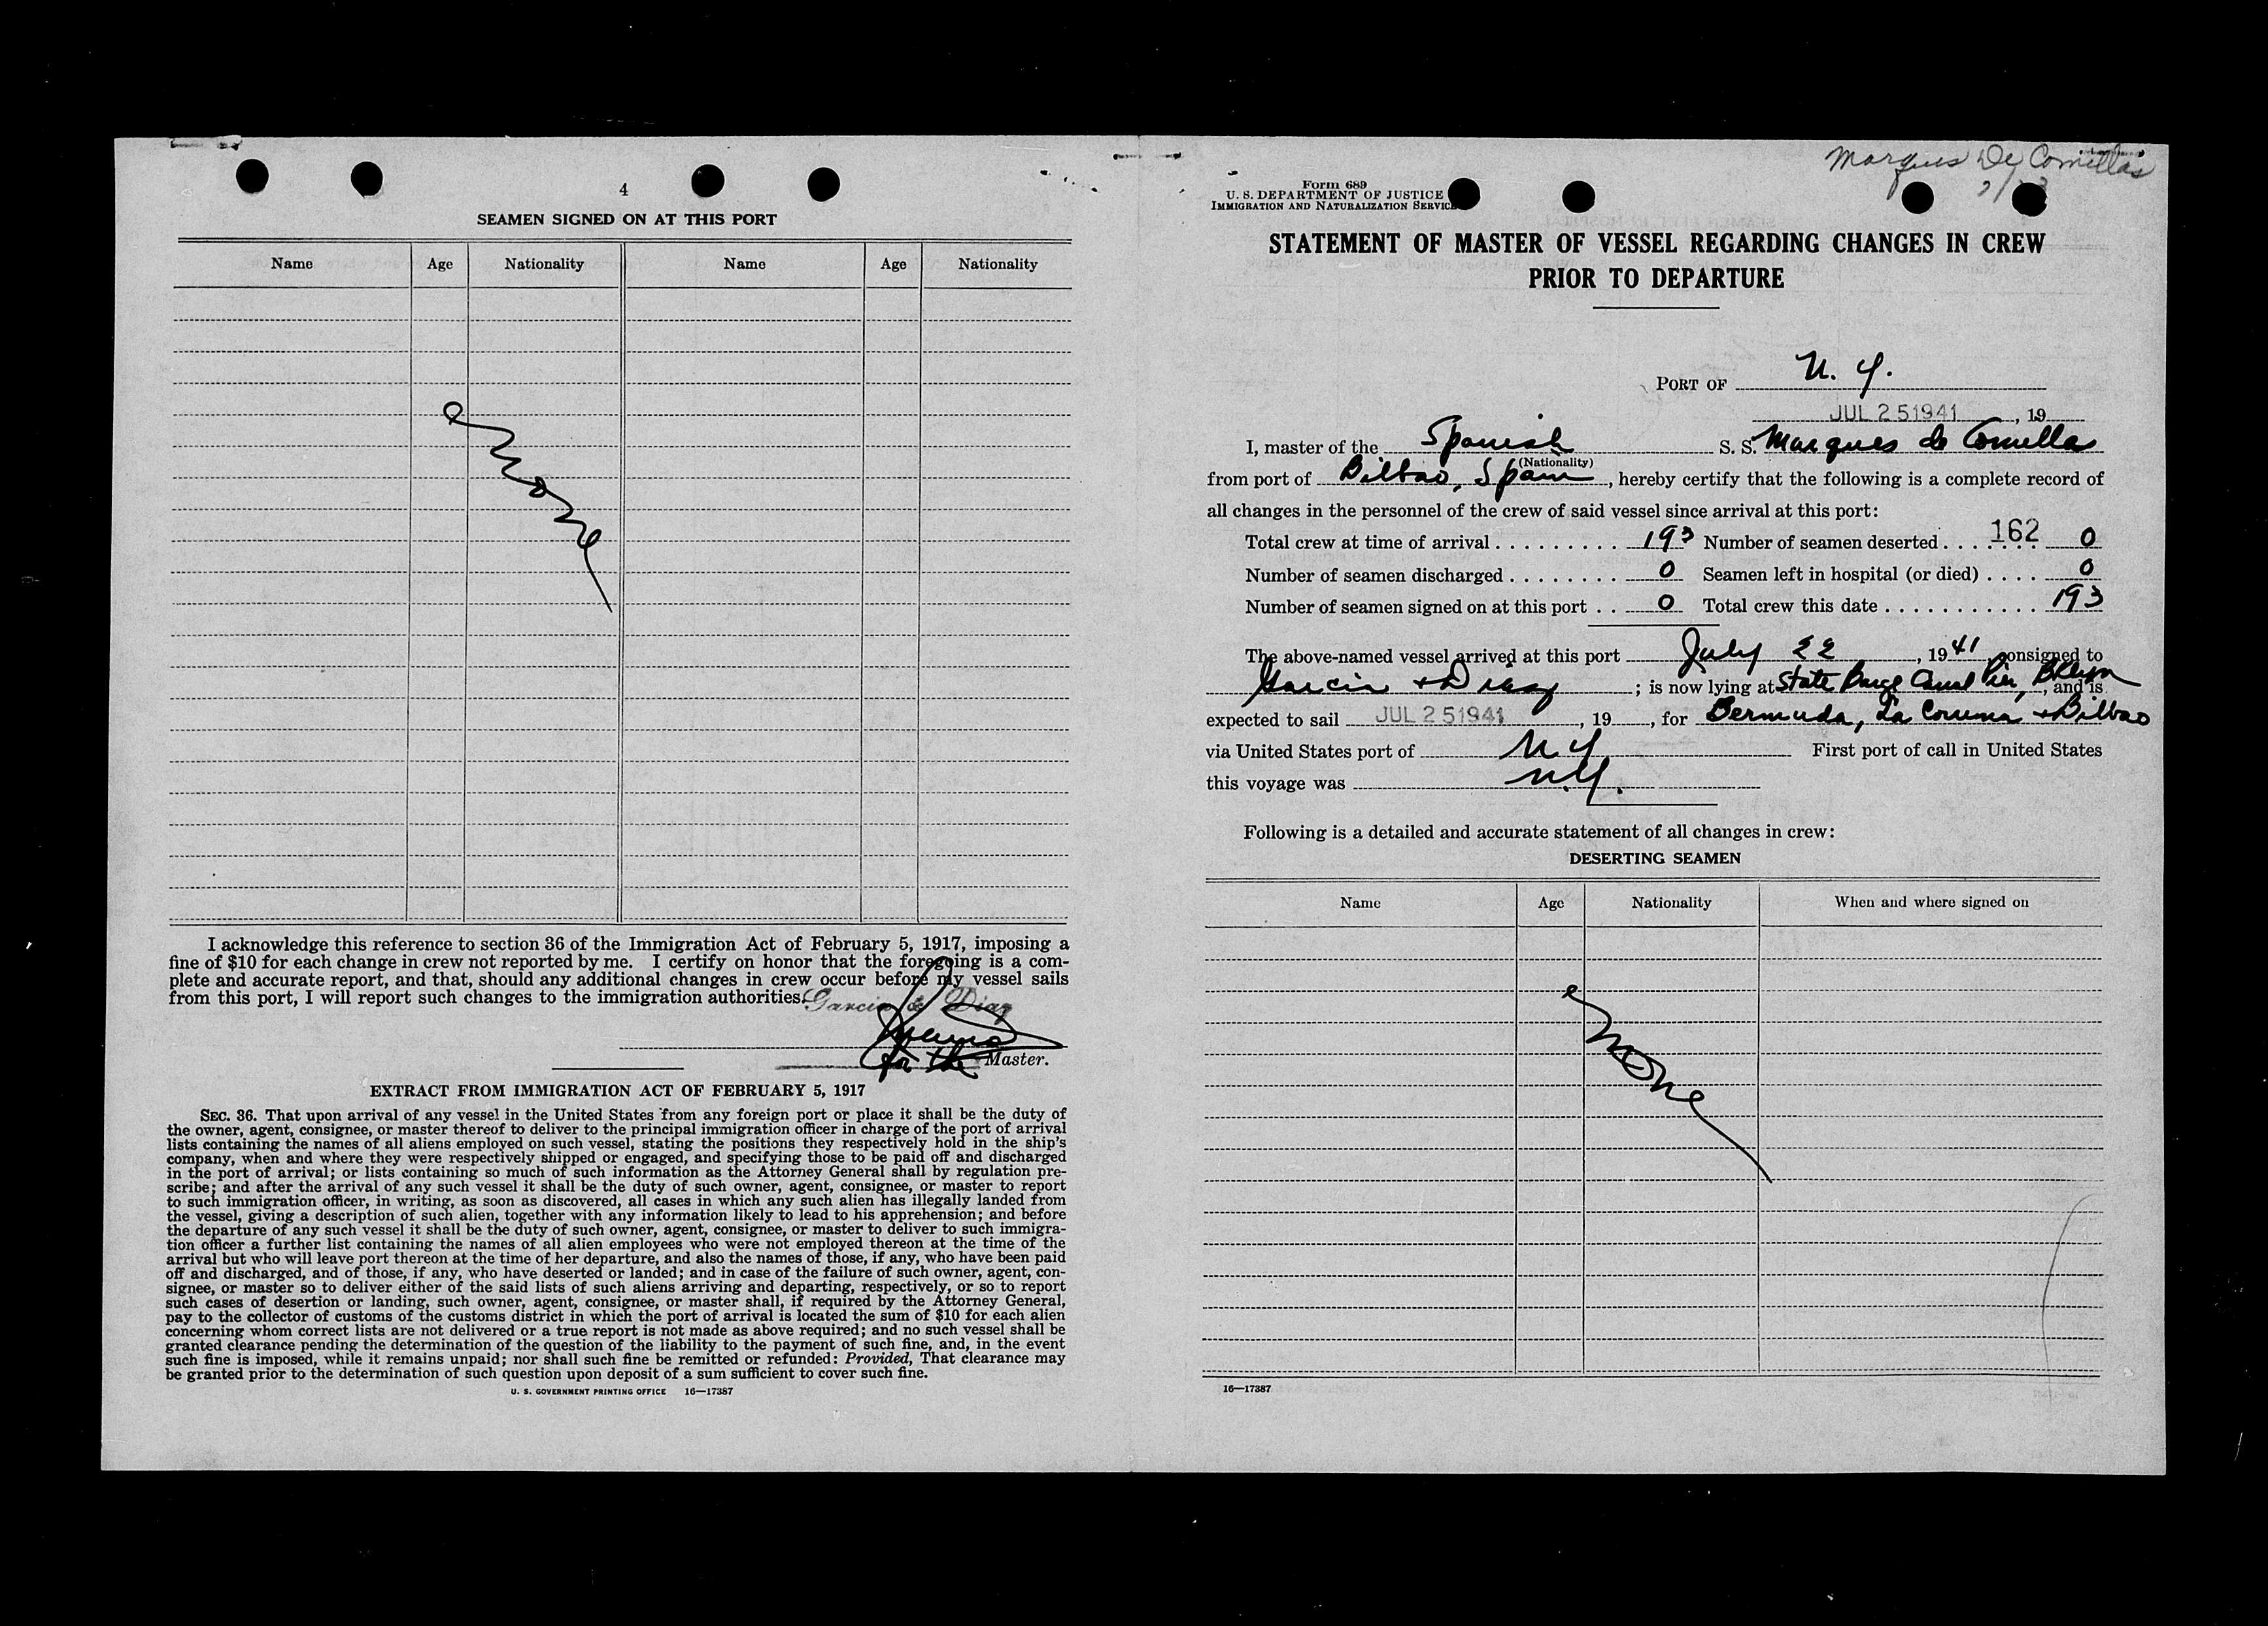 4
SEAMEN SIGNED ON AT THIS PORT
Name Age Nationality Name Age Nationality
None
I acknowledge this reference to section 36 of the Immigration Act of February 5, 1917, imposing a
fine of $10 for each change in crew not reported by me. I certify on honor that the foregoing is a com-
plete and accurate report, and that, should any additional changes in crew occur before my vessel sails
from this port, I will report such changes to the immigration authorities.
Garcia & Diaz
for the Master.
EXTRACT FROM IMMIGRATION ACT OF FEBRUARY 5, 1917
SEC. 36. That upon arrival of any vessel in the United States from any foreign port or place it shall be the duty of
the owner, agent, consignee, or master thereof to deliver to the principal immigration officer in charge of the port of arrival
lists containing the names of all aliens employed on such vessel, stating the positions they respectively hold in the ship's
company, when and where they were respectively shipped or engaged, and specifying those to be paid off and discharged
in the port of arrival; or lists containing so much of such information as the Attorney General shall by regulation pre-
scribe; and after the arrival of any such vessel it shall be the duty of such owner, agent, consignee, or master to report
to such immigration officer, in writing, as soon as discovered, all cases in which any such alien has illegally landed from
the vessel, giving a description of such alien, together with any information likely to lead to his apprehension; and before
the departure of any such vessel it shall be the duty of such owner, agent, consignee, or master to deliver to such immigra-
tion officer a further list containing the names of all alien employees who were not employed thereon at the time of the
arrival but who will leave port thereon at the time of her departure, and also the names of those, if any, who have been paid
off and discharged, and of those, if any, who have deserted or landed; and in case of the failure of such owner, agent, con-
signee, or master so to deliver either of the said lists of such aliens arriving and departing, respectively, or so to report
such cases of desertion or landing, such owner, agent, consignee, or master shall, if required by the Attorney General,
pay to the collector of customs of the customs district in which the port of arrival is located the sum of $10 for each alien
concerning whom correct lists are not delivered or a true report is not made as above required; and no such vessel shall be
granted clearance pending the determination of the question of the liability to the payment of such fine, and, in the event
such fine is imposed, while it remains unpaid; nor shall such fine be remitted or refunded: Provided, That clearance may
be granted prior to the determination of such question upon deposit of a sum sufficient to cover such fine.
U. S. GOVERNMENT PRINTING OFFICE 16—17387
Marques De Comillas
Form 689
U. S. DEPARTMENT OF JUSTICE
IMMIGRATION AND NATURALIZATION SERVICE
STATEMENT OF MASTER OF VESSEL REGARDING CHANGES IN CREW
PRIOR TO DEPARTURE
PORT OF N. Y.
JUL 25 1941, 19
I, master of the Spanish S. S. Marques de Comillas
(Nationality)
from port of Bilbao, Spain, hereby certify that the following is a complete record of
all changes in the personnel of the crew of said vessel since arrival at this port:
Total crew at time of arrival 193 Number of seamen deserted 162 0
Number of seamen discharged 0 Seamen left in hospital (or died) 0
Number of seamen signed on at this port 0 Total crew this date 193
The above-named vessel arrived at this port July 22, 1941, consigned to
Garcia + Diaz; is now lying at State Barge Canal Pier, Bklyn, and is
expected to sail JUL 25 1941, 19, for Bermuda, La Coruna + Bilbao
via United States port of N Y First port of call in United States
this voyage was N.Y.
Following is a detailed and accurate statement of all changes in crew:
DESERTING SEAMEN
Name Age Nationality When and where signed on
None
16—17387